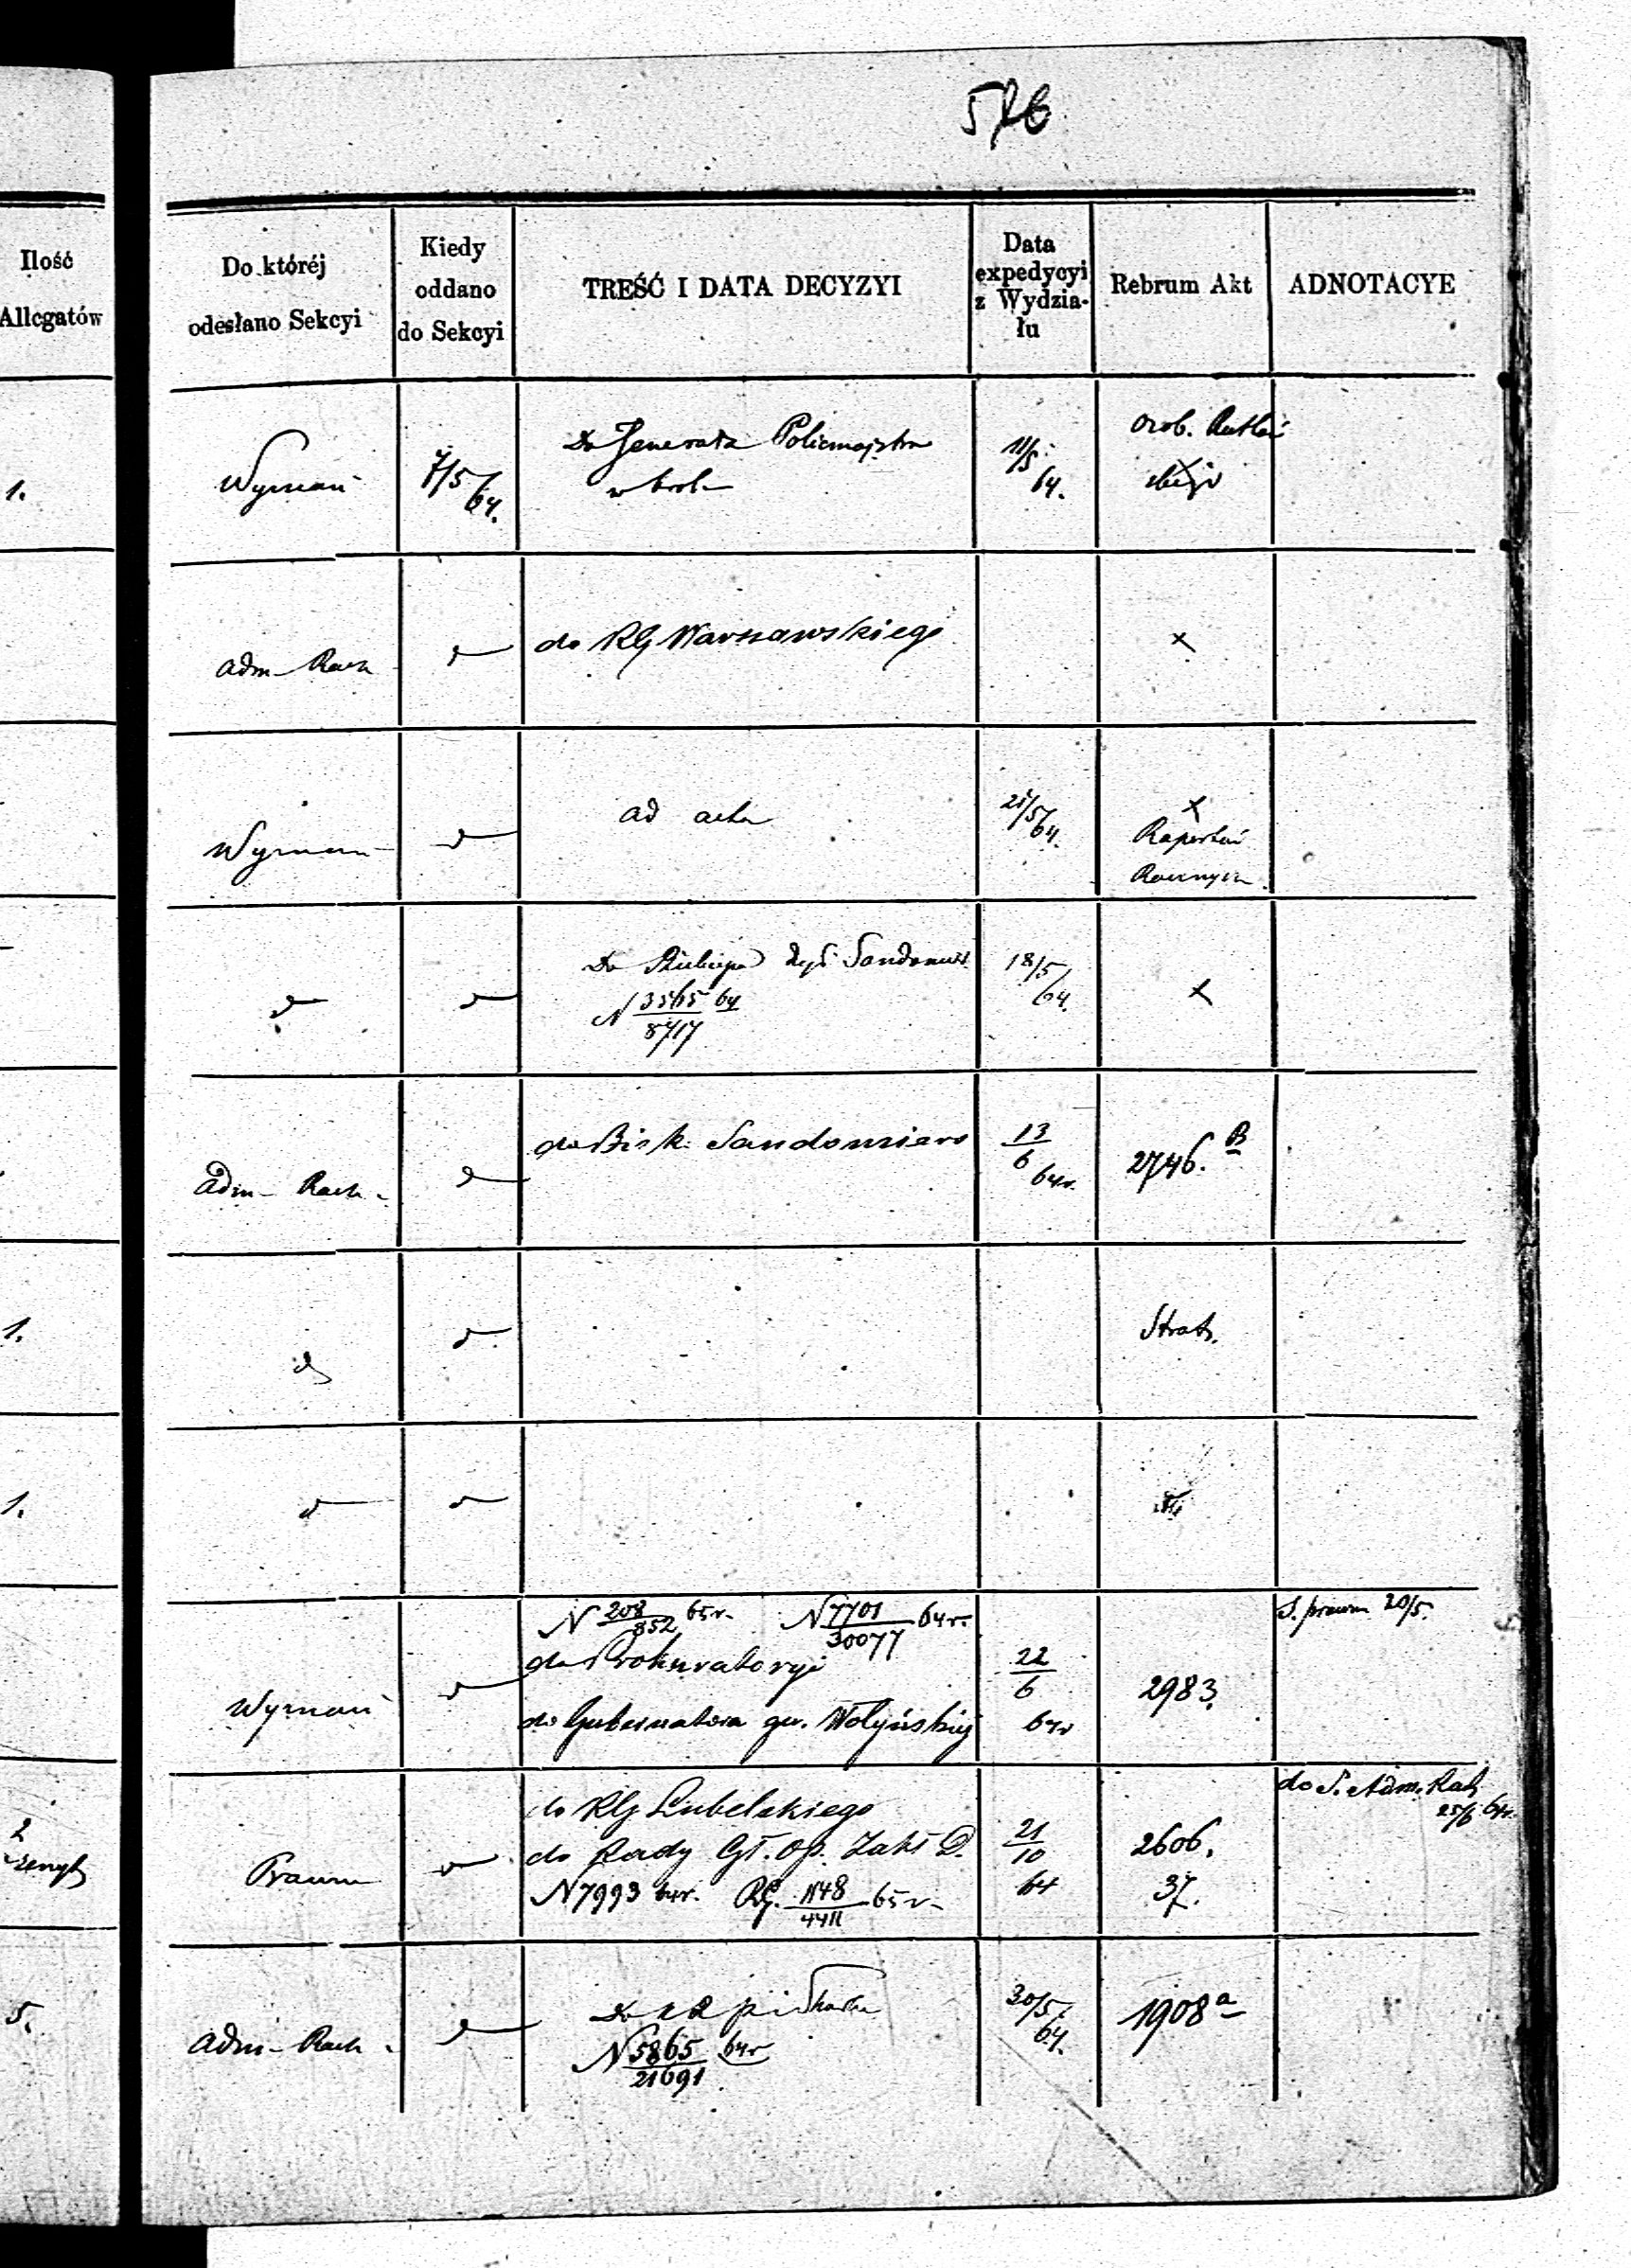 Ilość
Allegatów
Do któréj
odesłano Sekcyi
Kiedy
oddano
do Sekcyi
TREŚĆ I DATA DECYZYI
Data
expedycyi
z Wydzia-
łu
Rebrum Akt
ADNOTACYE
1.
Wyznań
7/5
64.
Do Jenerała Policmajstra
11/5
64.
Adm-Rach
do RG Warszawskiego
x
Wyznań
ad acta
5/
64.
x
Raportów
Do
Sandomier
N 3565 64
18/5
64
x
Adm-Rach-
do Bisk. Sandomiers
13
6
64r.
2746. B
1.
Strat.
1.
Wyznań
N 208/852 65r. N 7701/30077 64r.
do Prokuratoryi
do Gubernatora gu. Wołyńskiej
22
6
64r
2983.
S. prawn 20/5.
2
Prawn
do RG Lubelskiego
do Rady Gł. Op. Zakł D.
N 7993 64r. RG. 1148/4411 65r-
21
10
64
2606.
37.
do S. Adm. Rach
25/6 64r.
5.
Adm-Rach-
N 5865/21691 64r
30/5
64.
1908 a